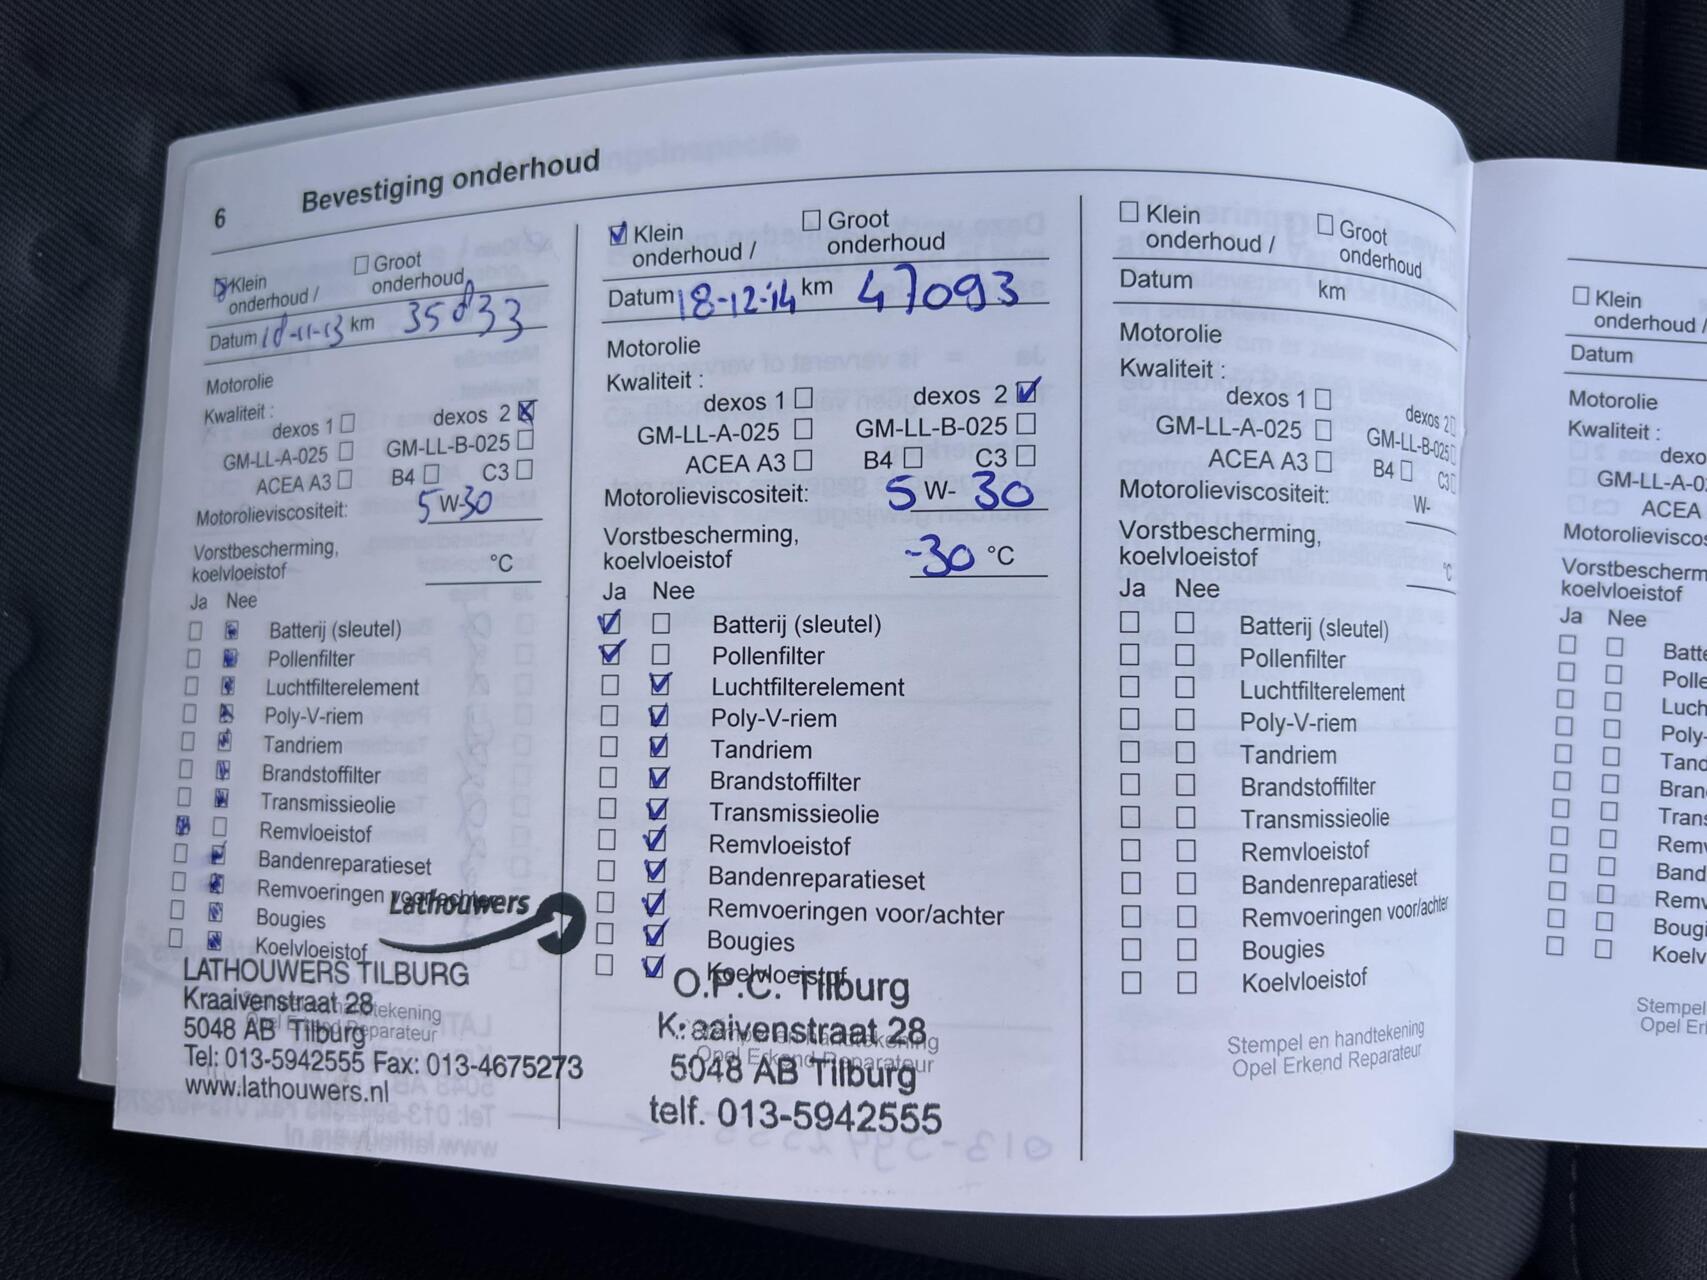 6 Bevestiging onderhoud
Klein onderhoud / Groot onderhoud
Datum 18-11-13 km 35833
Motorolie
Kwaliteit :
dexos 1 dexos 2
GM-LL-A-025 GM-LL-B-025
ACEA A3 B4 C3
Motorolieviscositeit: 5 W-30
Vorstbescherming,
koelvloeistof °C
Ja Nee
Batterij (sleutel)
Pollenfilter
Luchtfilterelement
Poly-V-riem
Tandriem
Brandstoffilter
Transmissieolie
Remvloeistof
Bandenreparatieset
Remvoeringen voor/achter
Bougies
Koelvloeistof
Lathouwers
LATHOUWERS TILBURG
Kraaivenstraat 28
5048 AB Tilburg
Tel: 013-5942555 Fax: 013-4675273
www.lathouwers.nl
Klein onderhoud / Groot onderhoud
Datum 18-12-14 km 47093
Motorolie
Kwaliteit :
dexos 1 dexos 2
GM-LL-A-025 GM-LL-B-025
ACEA A3 B4 C3
Motorolieviscositeit: 5 W- 30
Vorstbescherming,
koelvloeistof -30 °C
Ja Nee
Batterij (sleutel)
Pollenfilter
Luchtfilterelement
Poly-V-riem
Tandriem
Brandstoffilter
Transmissieolie
Remvloeistof
Bandenreparatieset
Remvoeringen voor/achter
Bougies
Koelvloeistof
Stempel en handtekening
Opel Erkend Reparateur
O.P.C. Tilburg
Kraaivenstraat 28
5048 AB Tilburg
telf. 013-5942555
Klein onderhoud / Groot onderhoud
Datum km
Motorolie
Kwaliteit :
dexos 1 dexos 2
GM-LL-A-025 GM-LL-B-025
ACEA A3 B4 C3
Motorolieviscositeit: W-
Vorstbescherming,
koelvloeistof °C
Ja Nee
Batterij (sleutel)
Pollenfilter
Luchtfilterelement
Poly-V-riem
Tandriem
Brandstoffilter
Transmissieolie
Remvloeistof
Bandenreparatieset
Remvoeringen voor/achter
Bougies
Koelvloeistof
Stempel en handtekening
Opel Erkend Reparateur
Klein
onderhoud /
Datum
Motorolie
Kwaliteit :
dexo
GM-LL-A-0
ACEA
Motorolieviscos
Vorstbescherm
koelvloeistof
Ja Nee
Batte
Polle
Luch
Poly-
Tand
Bran
Trans
Remv
Band
Remv
Bougi
Koelv
Stempel
Opel Er